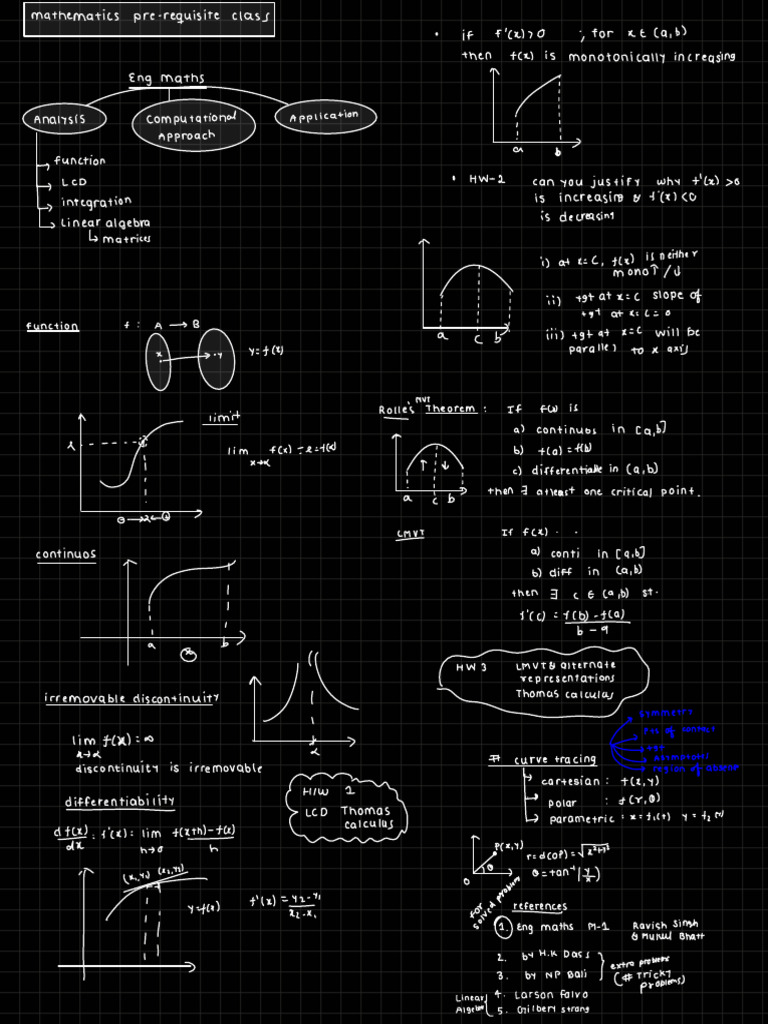 mathematics pre-requisite class
Eng maths
Analysis
Computational
Approach
Application
function
LCD
integration
linear algebra
matrices
function
f: A → B
x
y
y = f(x)
limit
l
lim f(x) = l = f(α)
x→α
continuos
a
b
x
irremovable discontinuity
lim f(x) = ∞
x→α
discontinuity is irremovable
α
H/W 1
LCD Thomas
calculus
differentiability
df(x)/dx = f'(x) = lim f(x+h)-f(x)/h
h→0
(x₁,y₁) (x₂,y₂)
y=f(x)
f'(x) = y₂-y₁/x₂-x₁
• if f'(x)>0 ; for x ∈ (a,b)
then f(x) is monotonically increasing
a
b
• HW-2 can you justify why f'(x) >0
is increasing & f'(x)<0
is decreasing
i) at x=c, f(x) is neither
mono↑/↓
ii) tgt at x=c slope of
tgt at x=c=0
iii) tgt at x=c will be
parallel to x axis
a c b
MVT
Rolle's Theorem : If f(x) is
a) continuos in [a,b]
b) f(a) = f(b)
c) differentiable in (a,b)
then ∃ atleast one critical point.
↑ ↓
a c b
LMVT
If f(x) . .
a) conti in [a,b]
b) diff in (a,b)
then ∃ c ∈ (a,b) st.
f'(c) = f(b)-f(a)/b-a
HW 3 LMVT & alternate
representations
Thomas calculus
# curve tracing
symmetry
pts of contact
tgt
Asymptotes
region of absent
cartesian : f(x,y)
polar : f(r,θ)
parametric : x=f₁(t) y=f₂(t)
P(x,y)
θ
O
r=d(OP)=√x²+y²
θ=tan⁻¹(y/x)
for
solved problem
references
1. Eng maths M-1 Ravish Singh
& Mukul Bhatt
2. by H.K Dass
3. by NP Bali
extra problem
(# Tricky
problems)
Linear
Algebra
4. Larson Falvo
5. Gilbery strang